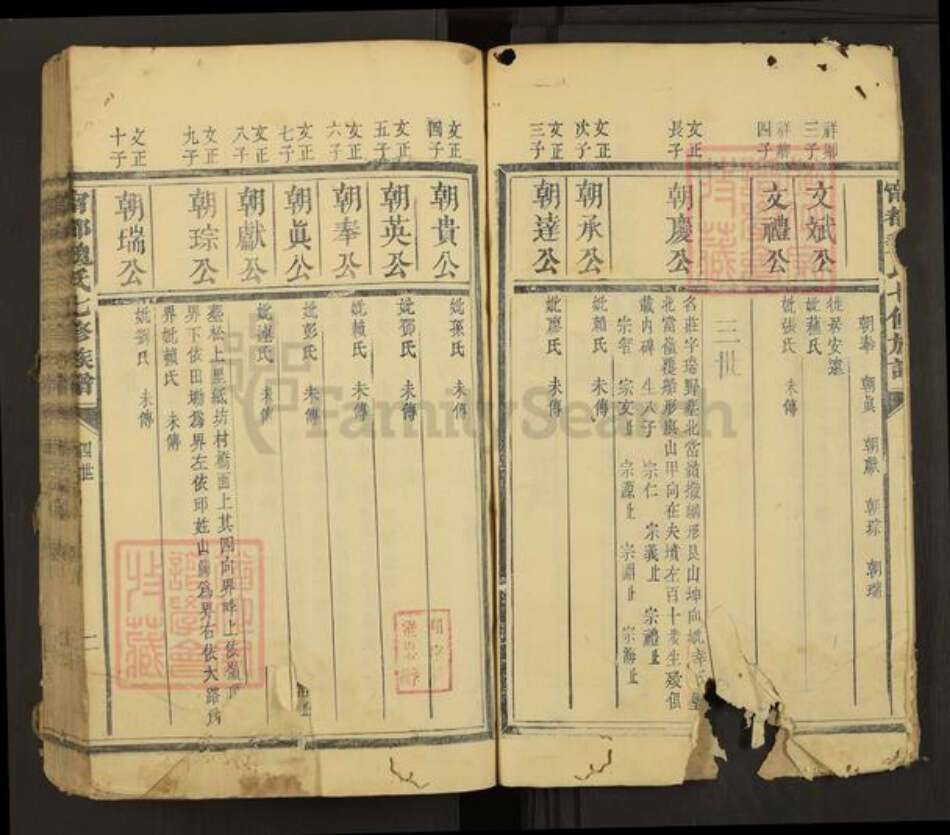 朝奉　朝眞　朝獻　朝琮　朝瑞
三子
文斌公
徙居安遠
妣蕭氏
四子
文禮公
妣張氏　未傳
三世
文正
長子
朝慶公
名莊字瑞野葬北當嶺撥網形艮山坤向妣幸氏
北當嶺覆船形艮山甲向在夫墳左百十步生歿俱
載內碑　生八子　宗仁　宗義　宗禮
宗智　宗文　宗源　宗淵　宗海
文正
次子
朝承公
妣賴氏　未傳
文正
三子
朝達公
妣廖氏　未傳
文正
四子
朝貴公
妣孫氏　未傳
文正
五子
朝英公
妣鄧氏　未傳
文正
六子
朝奉公
妣賴氏　未傳
文正
七子
朝眞公
妣彭氏　未傳
文正
八子
朝獻公
妣連氏　未傳
文正
九子
朝琮公
葬松上里紙坊村橋面上其四向界畔上依嶺頂
界下依田塝為界左依邱姓山為界右依大路為
界妣賴氏　未傳
文正
十子
朝瑞公
妣劉氏　未傳
寧都魏氏七修族譜
四世
FamilySearch